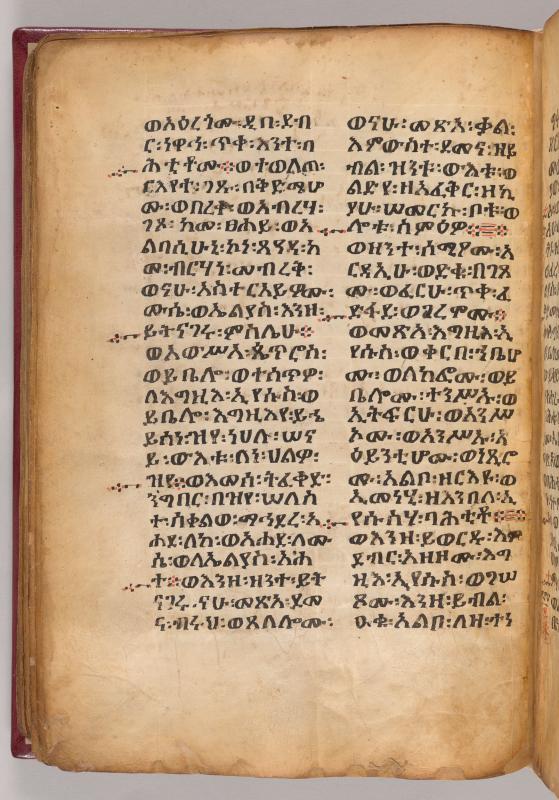 ወአዕረጎሙ፡ዲበ፡ደብ
ር፡ነዋኅ፡ጥቀ፡እንተ፡ባ
ሕቲቶሙ።ወተወለጠ፡
ርእየቱ፡ገጹ፡በቅድሜሆ
ሙ፡ወበረቀ፡ወአብረሃ፡
ገጹ፡ከመ፡ፀሐይ፡ወአ
ልባሲሁኒ፡ኮነ፡ጸዓዳ፡ከ
መ፡ብርሃነ፡መብረቅ፡
ወናሁ፡አስተርአይዎሙ፡
ሙሴ፡ወኤልያስ፡እንዘ፡
ይትናገሩ፡ምስሌሁ።
ወአውሥአ፡ጴጥሮስ፡
ወይቤሎ፡ወተሰጥዎ፡
ለእግዚእ፡ኢየሱስ፡ወ
ይቤሎ፡እግዚእየ፡ይኄ
ይሰነ፡ዝየ፡ነሀሉ፡ሠና
ይ፡ውእቱ፡ለነ፡ሀልዎ፡
ዝየ።ወእመሰ፡ትፈቅድ፡
ንግበር፡በዝየ፡ሠለስ
ተ፡ሰቀልወ፡ማኅደረ፡አ
ሐደ፡ለከ፡ወአሐደ፡ለሙ
ሴ፡ወለኤልያስ፡አሐ
ተ።ወእንዘ፡ዘንተ፡ይት
ናገሩ፡ናሁ፡መጽአ፡ደመ
ና፡ብሩህ፡ወጸለሎሙ፡
ወናሁ፡መጽአ፡ቃል፡
እምውስተ፡ደመና፡ዘይ
ብል፡ዝንቱ፡ውእቱ፡ወ
ልድየ፡ዘአፈቅር፡ዘኪ
ያሁ፡ሠመርኩ፡ቦቱ፡ወ
ሎቱ፡ስምዕዎ።
ወዘንተ፡ሰሚዖሙ፡አ
ርዳኢሁ፡ወድቁ፡በገጾ
ሙ፡ወፈርሁ፡ጥቀ፡ፈ
ድፋደ፡ወገረሞሙ።
ወመጽአ፡እግዚእ፡ኢ
የሱስ፡ወቀርበ፡ኀቤሆ
ሙ፡ወለከፎሙ፡ወይ
ቤሎሙ፡ተንሥኡ፡ወ
ኢትፍርሁ፡ወአንሥ
ኦሙ፡ወአንሥኡ፡አ
ዕይንቲሆሙ፡ወነጺሮ
ሙ፡አልቦ፡ዘርእዩ፡ወ
ኢመነሂ፡ዘእንበለ፡ኢ
የሱስሃ፡ባሕቲቶ።
ወእንዘ፡ይወርዱ፡እም
ደብር፡አዘዞሙ፡እግ
ዚእ፡ኢየሱስ፡ወገሠ
ጾሙ፡እንዘ፡ይብል፡
ዑቁ፡አልቦ፡ለዘ፡ተን